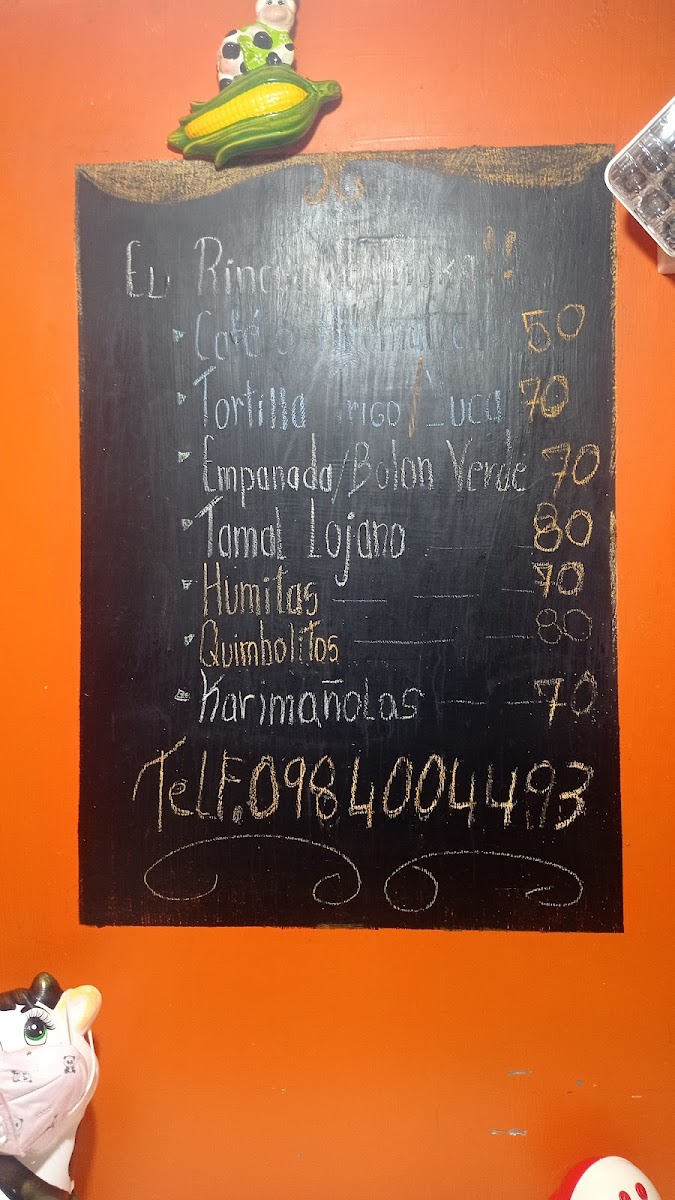 El
Café ó 50
Tortilla Trigo/Yuca 70
Empanada/Bolon Verde 70
Tamal Lojano 80
Humitas 70
Quimbolitos 80
Karimañolas 70
Telf.0984004493